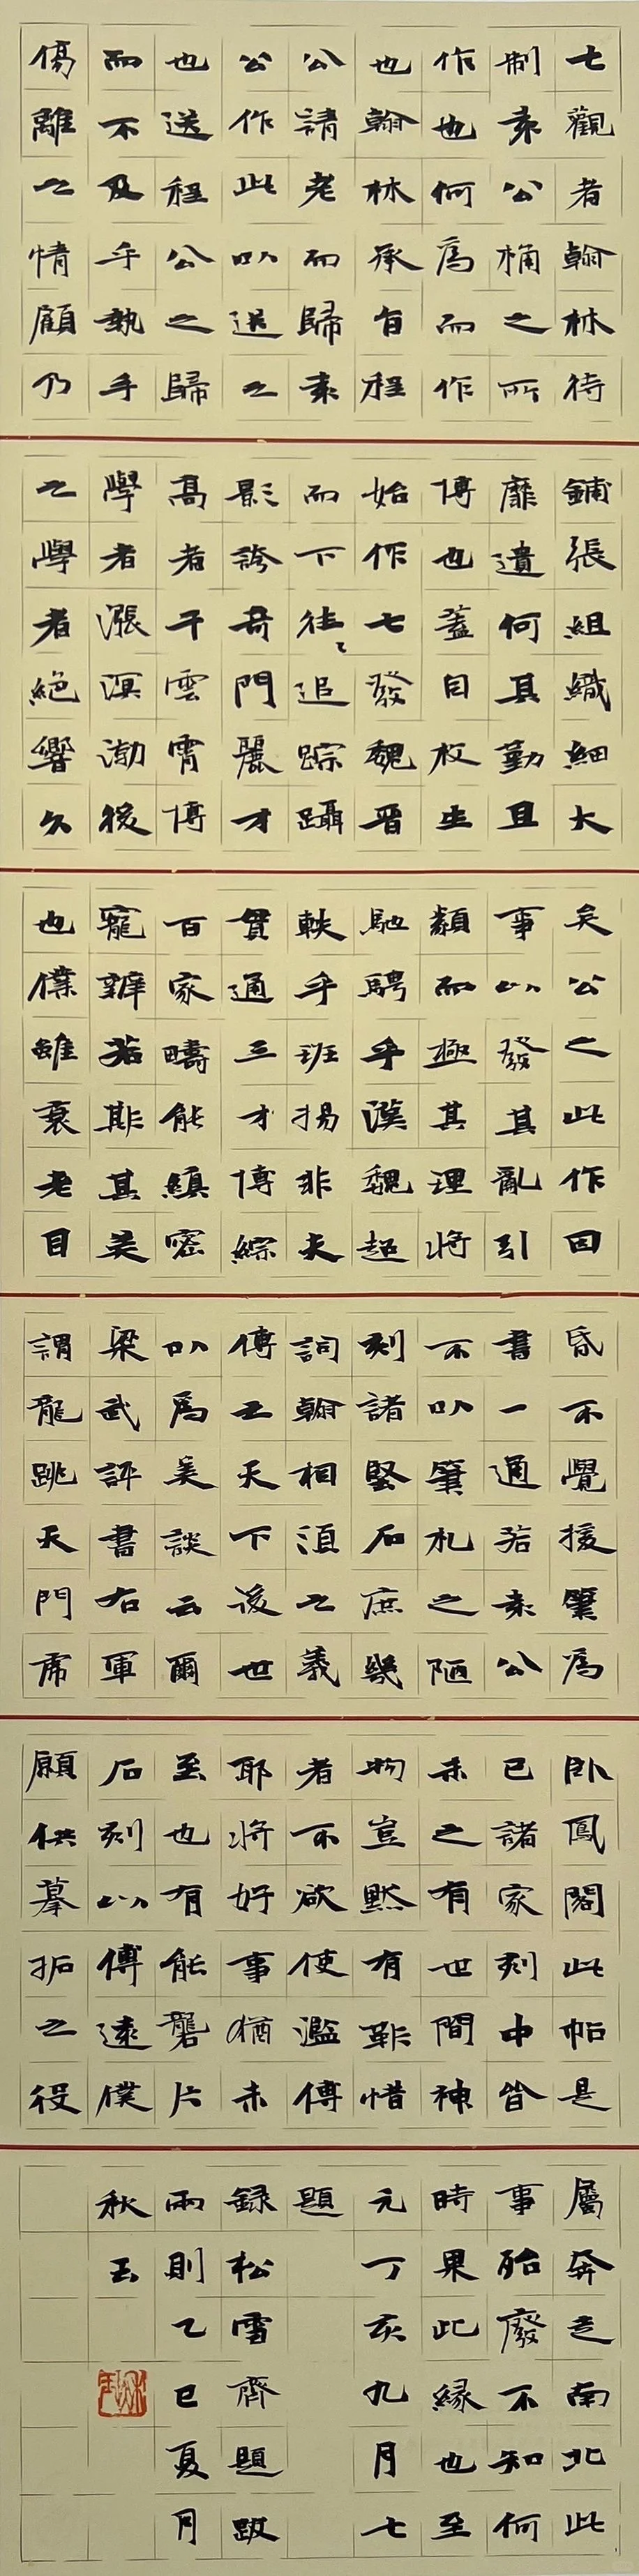 七觀者翰林待
制袁公桷之所
作也何爲而作
也翰林承旨程
公請老而歸袁
公作此以送之
也送程公之歸
而不及乎執手
傷離之情顧乃
鋪張組織細大
靡遺何其勤且
博也蓋自枚生
始作七發魏晉
而下往々追踪躡
影誇奇門麗才
高者干雲霄博
學者漲溟渤後
之學者絕響久
矣公之此作因
事以發其亂引
類而極其理將
馳騁乎漢魏超
軼乎班揚非夫
貫通三才博綜
百家疇能縝密
寵辭若斯其美
也僕雖衰老目
昏不覺援筆爲
書一通若袁公
不以筆札之陋
刻諸堅石庶幾
詞翰相須之義
傳之天下後世
以爲美談云爾
梁武評書右軍
謂龍跳天門虎
卧鳳閣此帖是
已諸家刻中皆
未之有世間神
物豈默有靳惜
者不欲使濫傳
耶將好事猶未
至也有能礱片
石刻以傳遠僕
願供摹拓之役
屬奔走南北此
事殆廢不知何
時果此緣也至
元丁亥九月七
題
錄松雪齊題跋
兩則乙巳夏月
秋玉